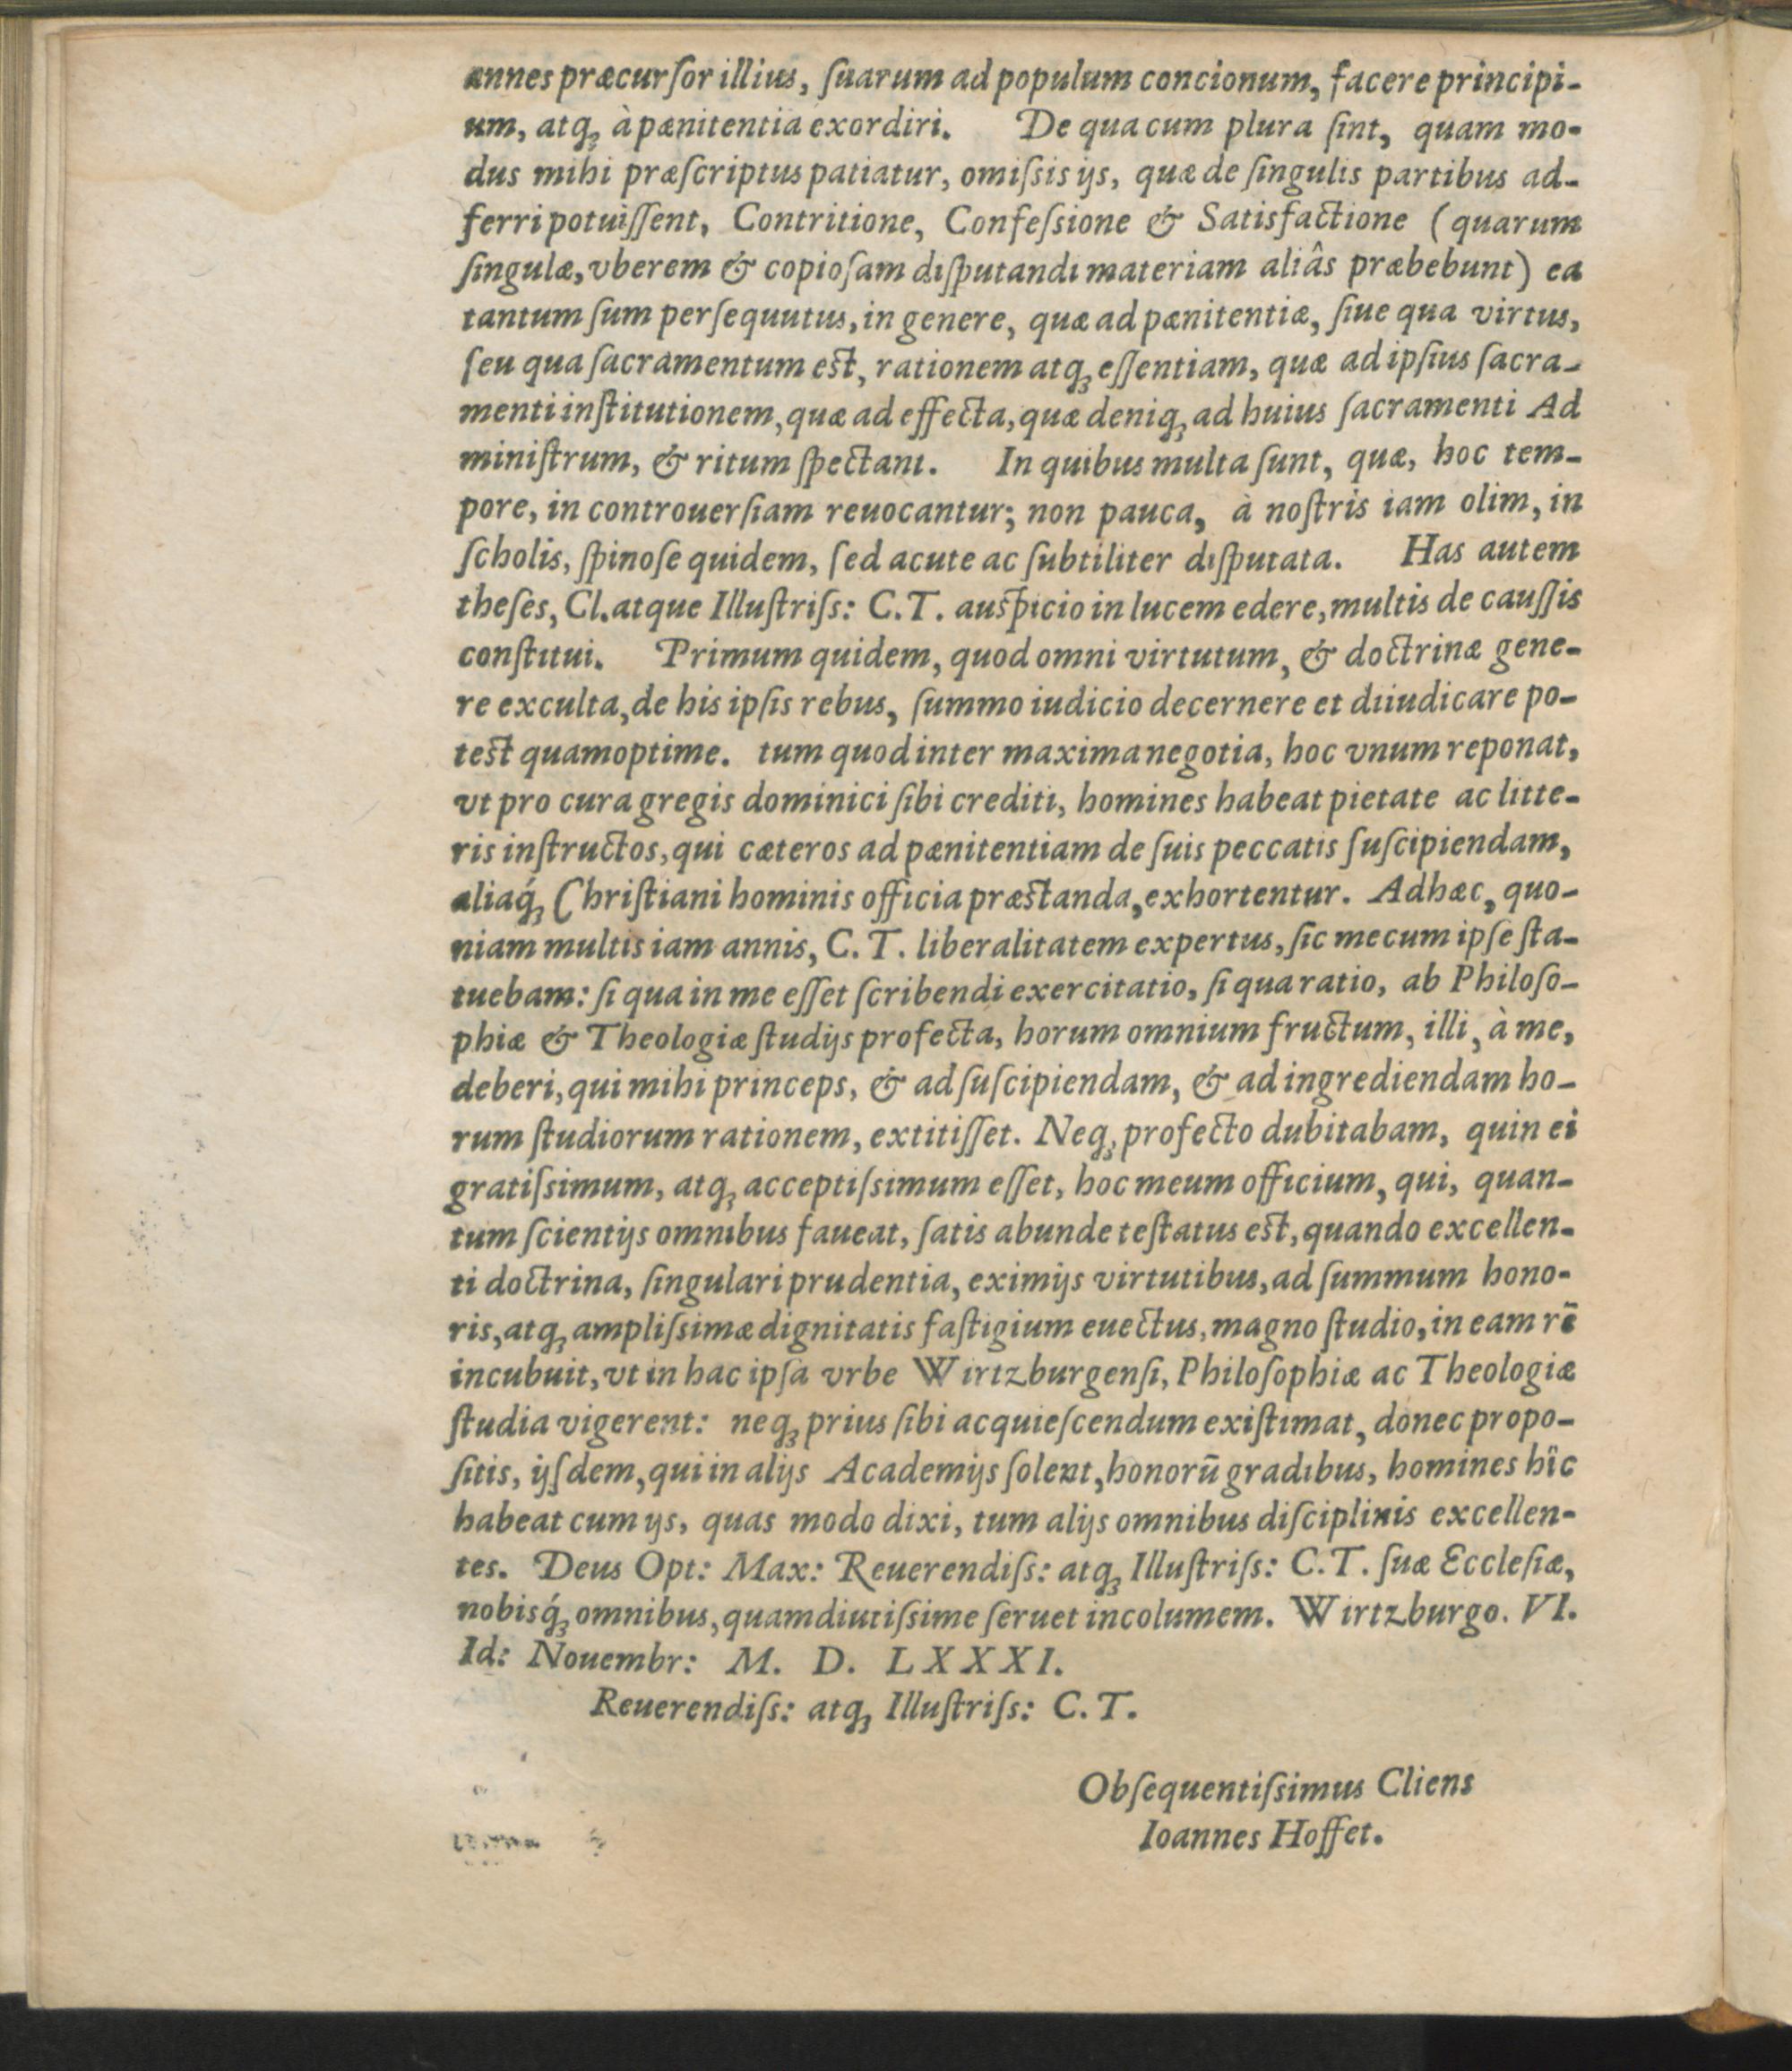 annes præcurſor illius, ſuarum ad populum concionum, facere principi-
um, atq́ꝫ à pænitentia exordiri. De qua cum plura ſint, quam mo-
dus mihi præſcriptus patiatur, omiſsis ijs, quæ de ſingulis partibus ad-
ferri potuiſſent, Contritione, Confeſsione & Satisfactione (quarum
ſingulæ, vberem & copioſam diſputandi materiam aliâs præbebunt) ea
tantum ſum perſequutus, in genere, quæ ad pænitentiæ, ſiue qua virtus,
ſeu qua ſacramentum est, rationem atqꝫ eſſentiam, quæ ad ipſius ſacra-
menti inſtitutionem, quæ ad effecta, quæ deniqꝫ ad huius ſacramenti Ad
miniſtrum, & ritum ſpectant. In quibus multa ſunt, quæ, hoc tem-
pore, in controuerſiam reuocantur; non pauca, à noſtris iam olim, in
ſcholis, ſpinoſe quidem, ſed acute ac ſubtiliter diſputata. Has autem
theſes, Cl. atque Illuſtriſs: C. T. auspicio in lucem edere, multis de cauſſis
conſtitui. Primum quidem, quod omni virtutum, & doctrinæ gene-
re exculta, de his ipſis rebus, ſummo iudicio decernere et diiudicare po-
test quamoptime. tum quod inter maxima negotia, hoc vnum reponat,
vt pro cura gregis dominici ſibi crediti, homines habeat pietate ac litte-
ris inſtructos, qui cæteros ad pænitentiam de ſuis peccatis ſuſcipiendam,
aliaq́ꝫ Chriſtiani hominis officia præstanda, exhortentur. Adhæc, quo-
niam multis iam annis, C. T. liberalitatem expertus, ſic mecum ipſe ſta-
tuebam: ſi qua in me eſſet ſcribendi exercitatio, ſi qua ratio, ab Philoſo-
phiæ & Theologiæ ſtudijs profecta, horum omnium fructum, illi, à me,
deberi, qui mihi princeps, & ad ſuſcipiendam, & ad ingrediendam ho-
rum ſtudiorum rationem, extitiſſet. Neqꝫ profecto dubitabam, quin ei
gratiſsimum, atqꝫ acceptiſsimum eſſet, hoc meum officium, qui, quan-
tum ſcientijs omnibus faueat, ſatis abunde teſtatus est, quando excellen-
ti doctrina, ſingulari prudentia, eximijs virtutibus, ad ſummum hono-
ris, atqꝫ ampliſsimæ dignitatis faſtigium euectus, magno ſtudio, in eam rē
incubuit, vt in hac ipſa vrbe Wirtzburgenſi, Philoſophiæ ac Theologiæ
ſtudia vigerent: neqꝫ prius ſibi acquieſcendum exiſtimat, donec propo-
ſitis, ijſdem, qui in alijs Academijs ſolent, honorū gradibus, homines hîc
habeat cum ijs, quas modo dixi, tum alijs omnibus diſciplinis excellen-
tes. Deus Opt: Max: Reuerendiſs: atqꝫ Illuſtriſs: C. T. ſuæ Eccleſiæ,
nobisq́ꝫ omnibus, quamdiutiſsime ſeruet incolumem. Wirtzburgo. VI.
Id: Nouembr: M. D. LXXXI.
Reuerendiſs: atqꝫ Illuſtriſs: C. T.
Obſequentiſsimus Cliens
Ioannes Hoffet.